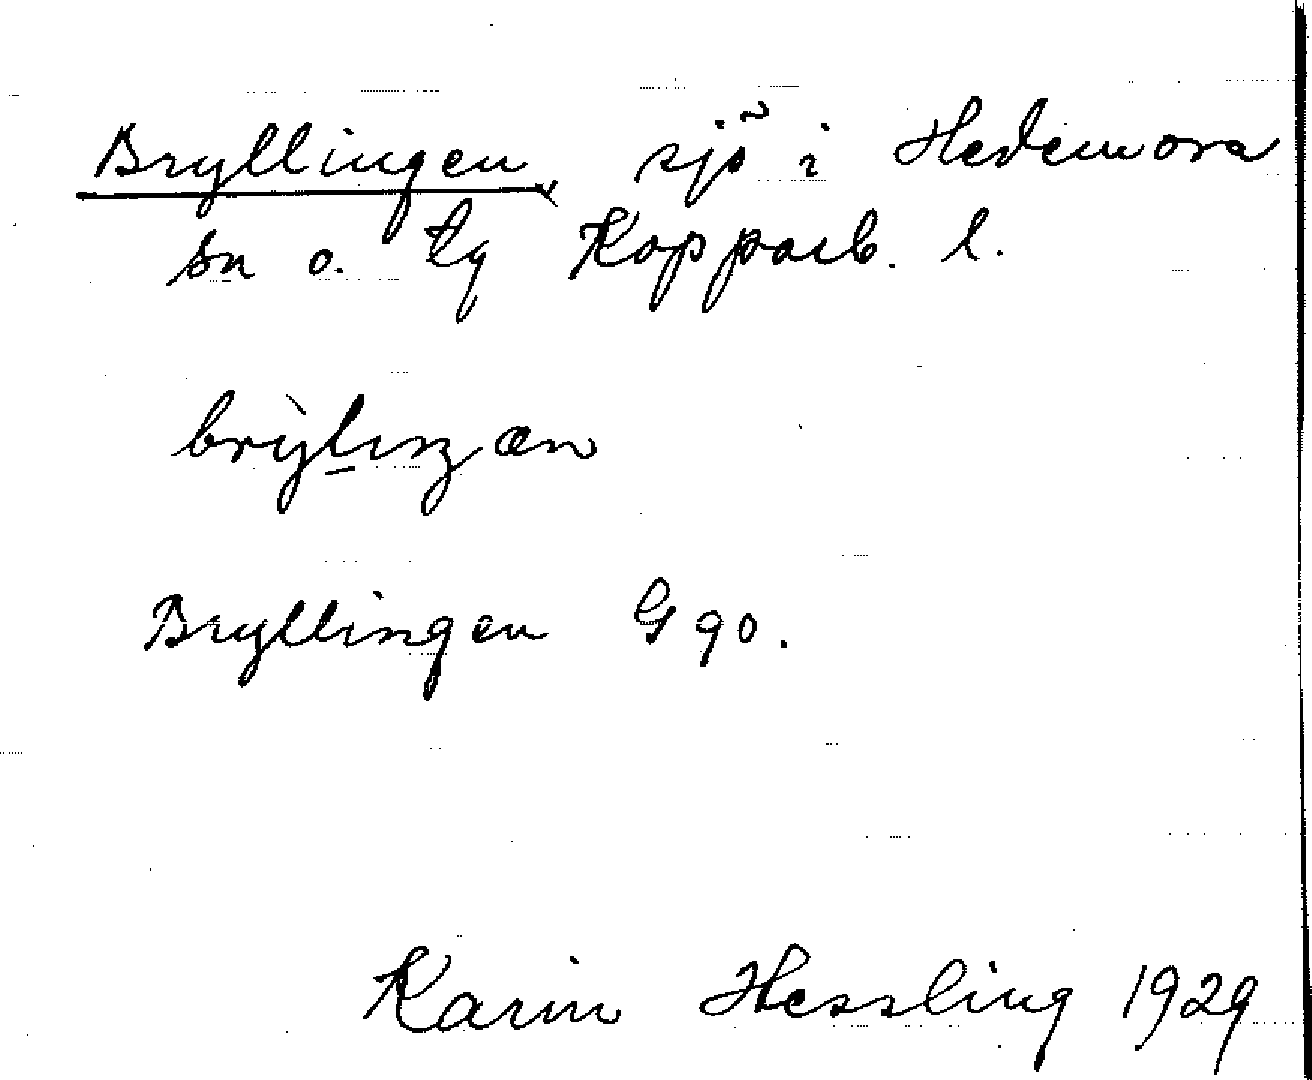 Bryllingen sjö i Hedemora
sn o. tg Kopparb. l.
Bryllingen G 90.
Karin Hessling 1929